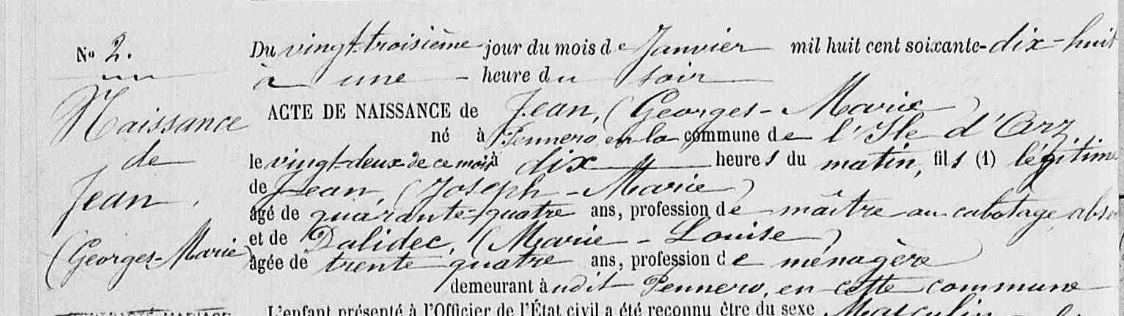 N° 2.
Naissance
de
Jean,
(Georges-Marie)
Du vingt-troisième jour du mois de Janvier mil huit cent soixante-dix-huit
à une heure du soir
ACTE DE NAISSANCE de Jean, (Georges-Marie)
né à Pennero en la commune de l'Ile d'Arz
le vingt-deux de ce mois à dix heures du matin, fils (1) légitime
de Jean (Joseph-Marie)
âgé de quarante-quatre ans, profession de maître au cabotage,
et de Dalidec, (Marie-Louise)
âgée de trente quatre ans, profession de ménagère
demeurant audit Pennero, en cette commune
L'enfant présenté à l'Officier de l'État civil a été reconnu être du sexe Masculin